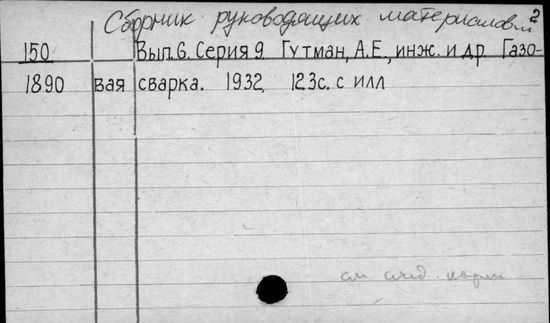 2
Сборник руководящих материалов
150 Вып. 6. Серия 9. Гутман, А.Е., инж. и др. Газо-
1890 вая сварка. 1932, 123с. с илл
см след.